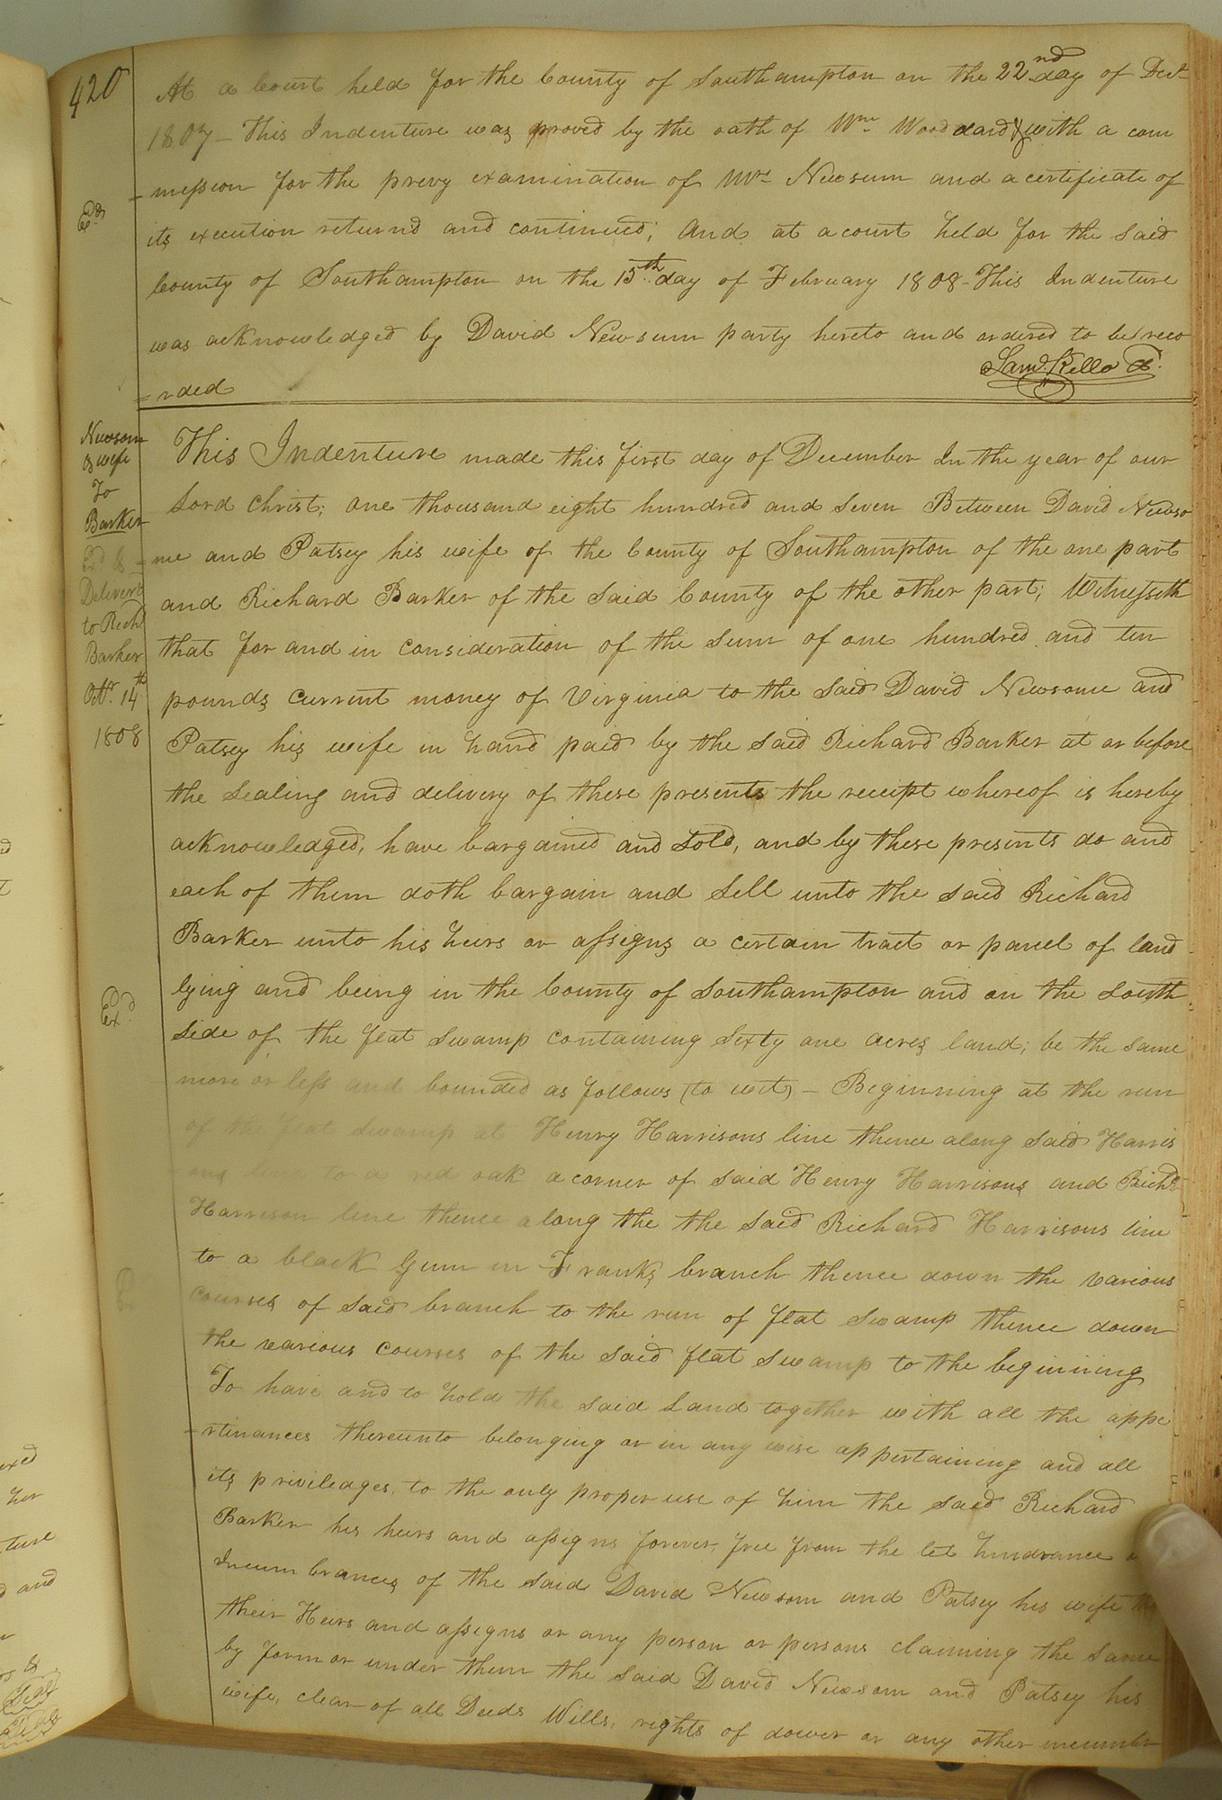 420
At a Court held for the County of Southampton on the 22nd day of Dect
1807 - This Indenture was proved by the oath of Wm. Woodard & with a com
- mission for the prevy examination of Mrs Newsum and a certificate of
its execution returnd and continued; and at a court held for the said
County of Southampton on the 15th day of February 1808 - This Indenture
was acknowledged by David Newsum party hereto and ordered to be reco
= rded
Saml. Kello
Newsom
& wife
To
Barker
Delivered
to Richd
Barker
Octr. 14th
1808
This Indenture made this first day of December In the year of our
Lord Christ; one thousand eight hundred and seven Between David Newso
= me and Patsey his wife of the County of Southampton of the one part
and Richard Barker of the said County of the other part; Witnesseth
that for and in consideration of the sum of one hundred and ten
pounds current money of Virginia to the said David Newsome and
Patsey his wife in hand paid by the said Richard Barker at or before
the sealing and delivery of these presents the receipt whereof is hereby
acknowledged, have bargained and sold, and by these presents do and
each of them doth bargain and sell unto the said Richard
Barker unto his heirs or assigns a certain tract or parcel of land
lying and being in the County of Southampton and on the south
side of the flat swamp containing sixty one acres land; be the same
more or less and bounded as follows (to wit) - Beginning at the run
of the flat swamp at Henry Harrisons line thence along said Harris
ons line to a red oak a corner of said Henry Harrisons and Richd
Harrison line thence along the the said Richard Harrisons line
to a black Gum in Franks branch thence down the various
courses of said branch to the run of flat swamp thence down
the various courses of the said flat swamp to the begining
To have and to hold the said Land together with all the appe
- rtinances thereunto belonging or in any wise appertaining and all
its privileages, to the only proper use of him the said Richard
Barker his heirs and assigns forever, free from the let hindrance
Incumbrances of the said David Newsom and Patsey his wife
their Heirs and assigns or any person or persons claiming the same
by form or under them the said David Newsom and Patsey his
wife, clear of all Deeds Wills, rights of dower or any other incumbr